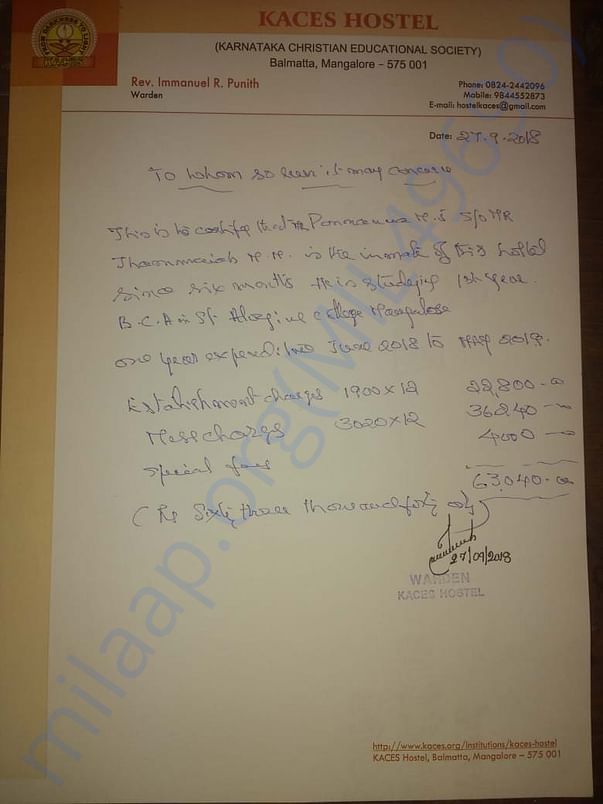 FROM DARKNESS TO LIGHT
KACES
KACES HOSTEL
(KARNATAKA CHRISTIAN EDUCATIONAL SOCIETY)
Balmatta, Mangalore – 575 001
Rev. Immanuel R. Punith
Warden
Phone: 0824-2442096
Mobile: 9844552873
E-mail: hostelkaces@gmail.com
Date: 27.9.2018
To whom so ever it may concern
This is to certify that Mr Ponnanna M.J. S/o MR
M.M. is the inmate of this hostel
since six months He is studying 1st year
B.C.A in St Aloysius college Mangalore
one year expenditure June 2018 to MAY 2019.
Establishment charges 1900×12 22,800-00
Mess charges 3020×12 36240-00
Special fees 4000-00
63,040-00
(Rs Sixty three thousand forty only)
27/09/2018
WARDEN
KACES HOSTEL
http://www.kaces.org/institutions/kaces-hostel
KACES Hostel, Balmatta, Mangalore – 575 001